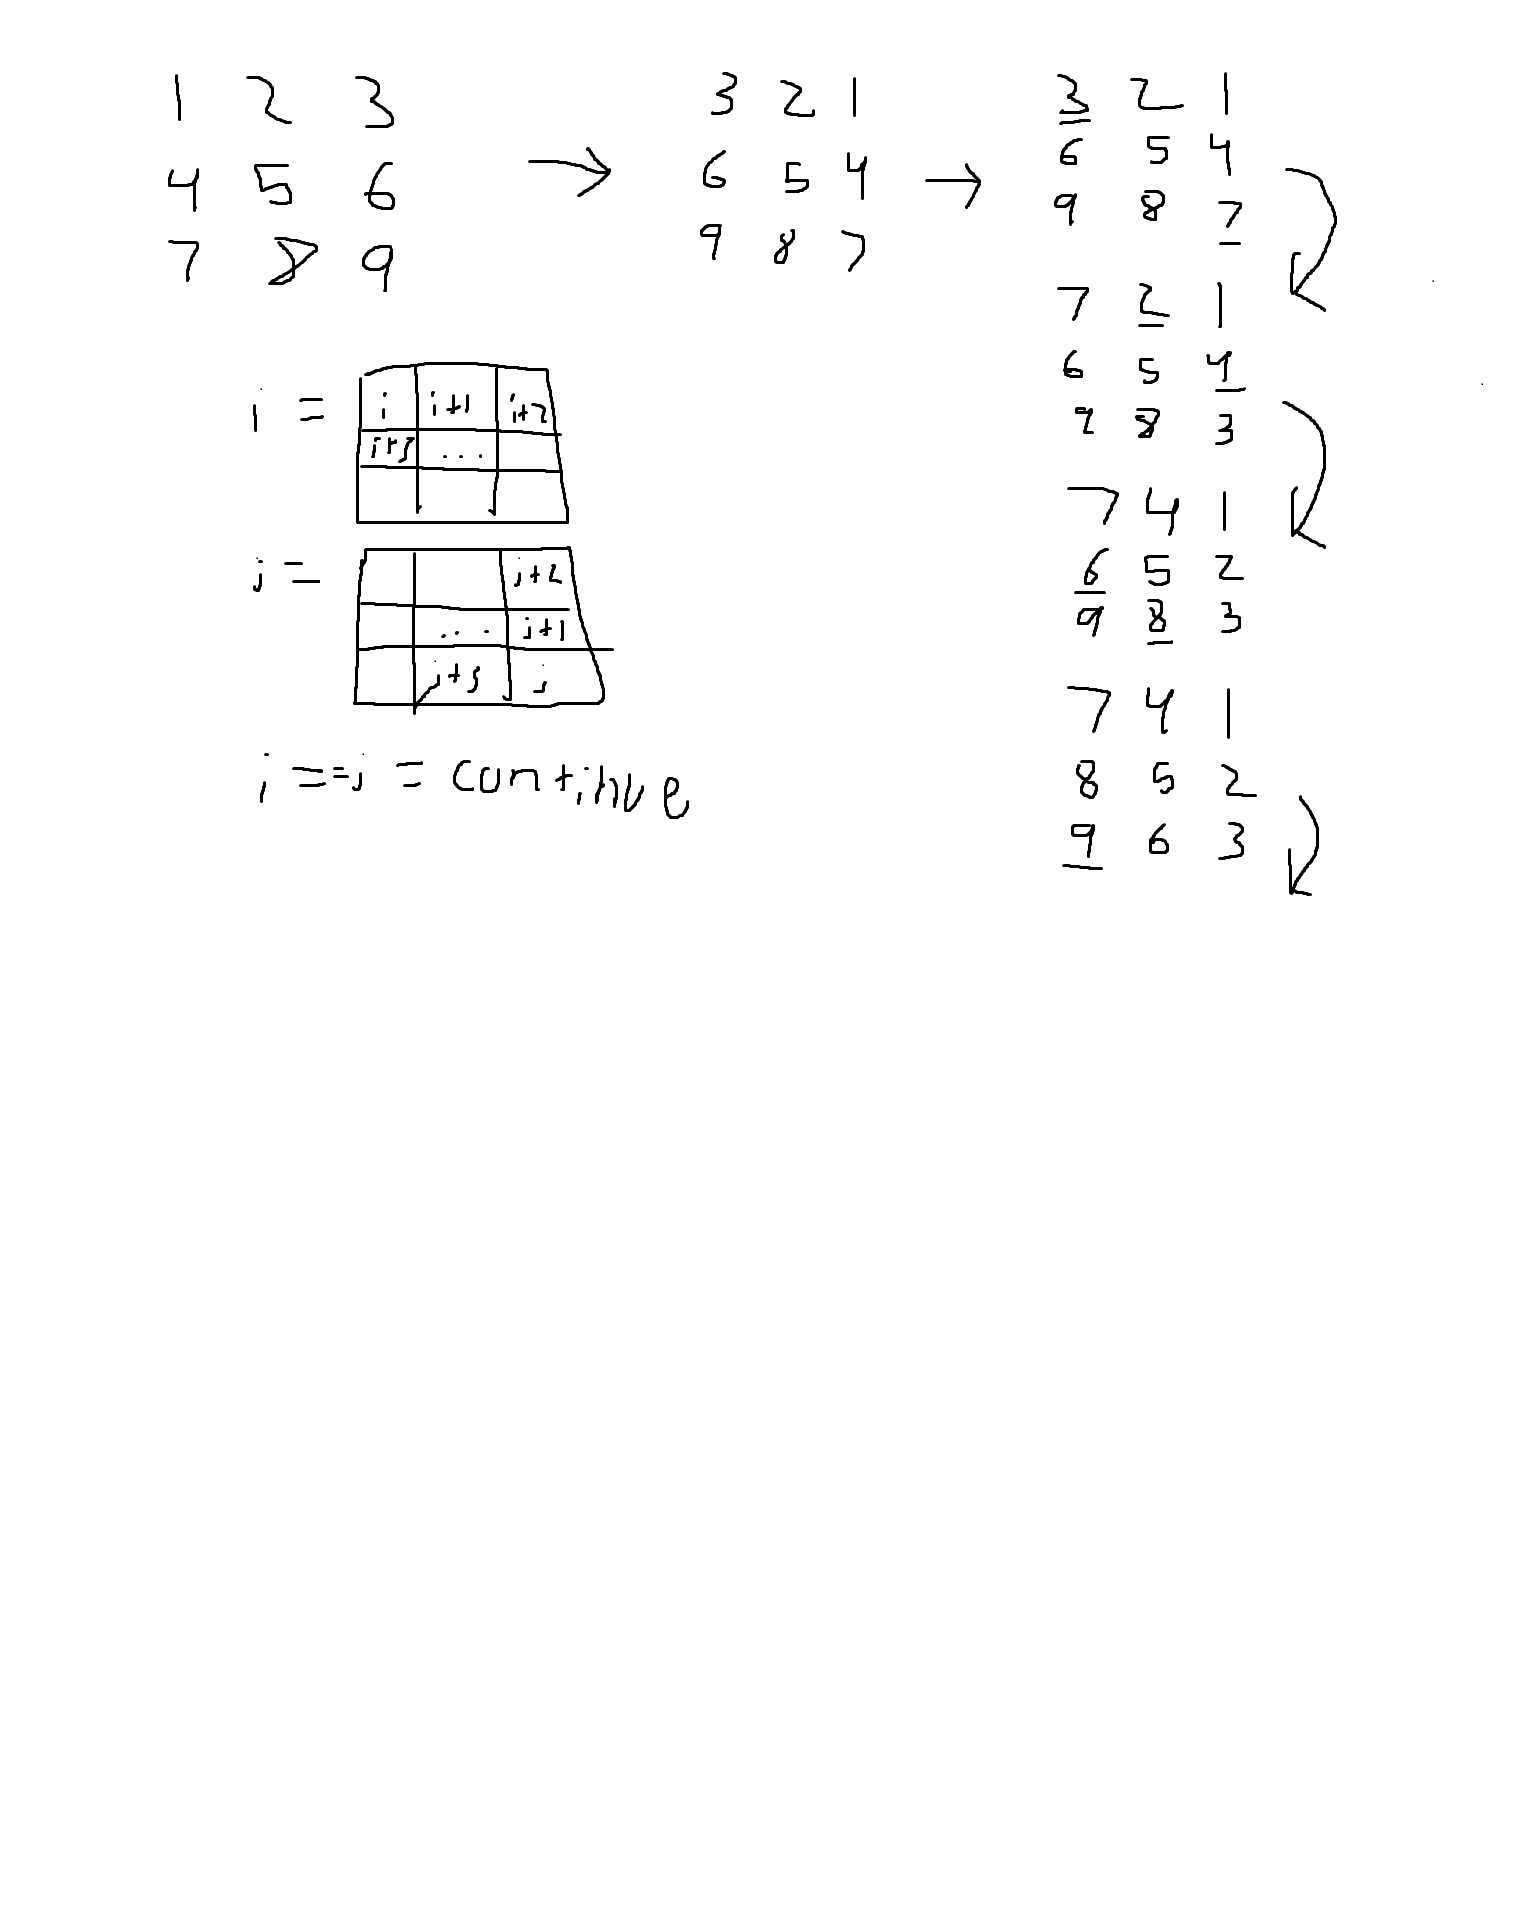 1 2 3
4 5 6
7 8 9
3 2 1
6 5 4
9 8 7
3 2 1
6 5 4
9 8 7
7 2 1
6 5 4
9 8 3
7 4 1
6 5 2
9 8 3
7 4 1
8 5 2
9 6 3
i =
i i+1 i+2
i+3 ...
j =
j+2
... j+1
j+3 j
i == j = continue